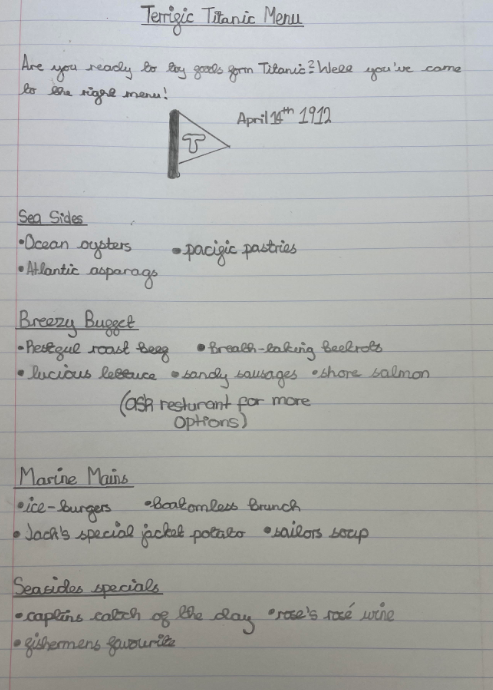 Terrific Titanic Menu
Are you ready to try foods form Titanic? Well you've come
to the right menu!
April 14th 1912
T
Sea Sides
• Ocean oysters • pacific pastries
• Atlantic asparags
Breezy Buffet
• Restful roast beef • Breath-taking beetrots
• lucious lettuce • sandy sausages • shore salmon
(ask resturant for more
options)
Marine Mains
• ice-burgers • Boatomless brunch
• Jack's special jacket potato • sailors soup
Seasides specials
• captins catch of the day • rose's rosé wine
• fishermens favourite